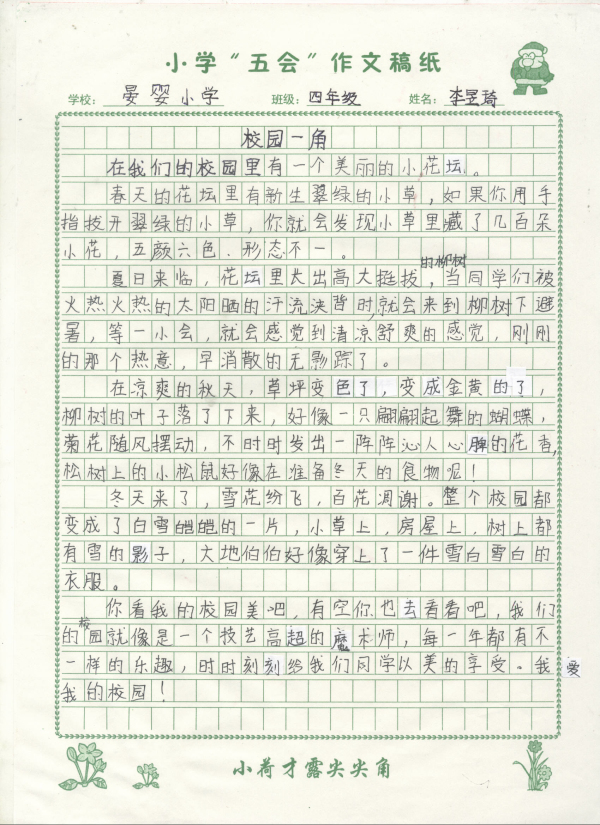 小学“五会”作文稿纸
学校：晏婴小学 班级：四年级 姓名：李昱琦
校园一角
在我们的校园里有一个美丽的小花坛。
春天的花坛里有新生翠绿的小草，如果你用手
指拔开翠绿的小草，你就会发现小草里藏了几百朵
小花，五颜六色.形态不一。
夏日来临，花坛里长出高大挺拔的柳树，当同学们被
火热火热的太阳晒的汗流浃背时，就会来到柳树下避
暑，等一小会，就会感觉到清凉舒爽的感觉，刚刚
的那个热意，早消散的无影踪了。
在凉爽的秋天，草坪变色了，变成金黄的了，
柳树的叶子落了下来，好像一只翩翩起舞的蝴蝶，
菊花随风摆动，不时时发出一阵阵沁人心脾的花香，
松树上的小松鼠好像在准备冬天的食物呢！
冬天来了，雪花纷飞，百花凋谢。整个校园都
变成了白雪皑皑的一片，小草上，房屋上，树上都
有雪的影子，大地伯伯好像穿上了一件雪白雪白的
衣服。
你看我的校园美吧，有空你也去看看吧，我们
的校园就像是一个技艺高超的魔术师，每一年都有不
一样的乐趣，时时刻刻给我们同学以美的享受。我爱
我的校园！
小荷才露尖尖角